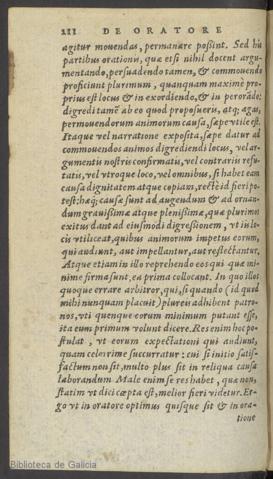 212 DE ORATORE
agitur mouendas, permanare possint. Sed his
partibus orationis, quæ etsi nihil docent argu-
mentando, persuadendo tamen, & commouendo
proficiunt plurimum, quanquam maximè pro-
prius est locus & in exordiendo, & in perorãdo;
digredi tamẽ ab eo quod proposueris, atq; agas,
permouendorum animorum causa, sæpe vtile est.
Itaque vel narratione exposita, sæpe datur ad
commouendos animos digrediendi locus, vel ar-
gumentis nostris confirmatis, vel contrariis refu-
tatis, vel vtroque loco, vel omnibus, si habet eam
causa dignitatem atque copiam, rectè id fieri po-
test: hæq; causæ sunt ad augendum & ad ornan-
dum grauissimæ atque plenissimæ, quæ plurimos
exitus dant ad eiusmodi digressionem, vt iis lo-
cis vti liceat, quibus animorum impetus eorum,
qui audiunt, aut impellantur, aut reflectantur,
Atque etiam in illo reprehendo eos qui quæ mi-
nime firma sunt, ea prima collocant. In quo illos
quoque errare arbitror, qui, si quando (id quod
mihi nunquam placuit) plureis adhibent patro-
nos, vti quenque eorum minimum putant esse,
ita eum primum volunt dicere. Res enim hoc po-
stulat, vt eorum expectationi qui audiunt,
quam celerrime succurratur: cui si initio satis-
factum non sit, multo plus sit in reliqua causa
laborandum Male enim se res habet, quæ non,
statim vt dici cœpta est, melior fieri videtur. Er-
go vt in oratore optimus quisque sit & in ora-
tione
Biblioteca de Galicia